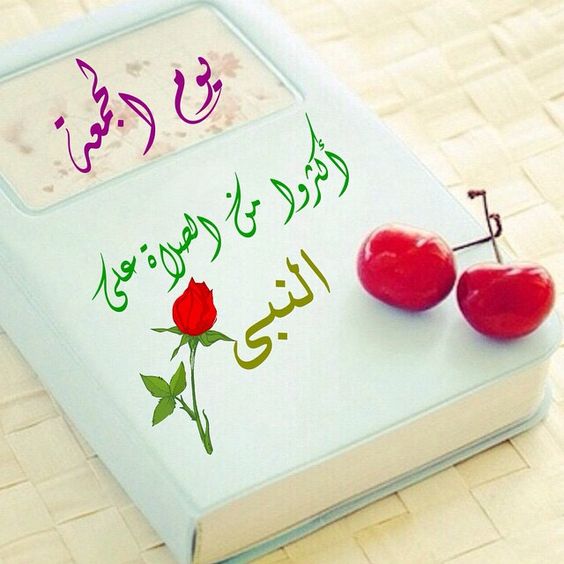 يوم الجمعة
أكثروا من الصلاة على
النبي